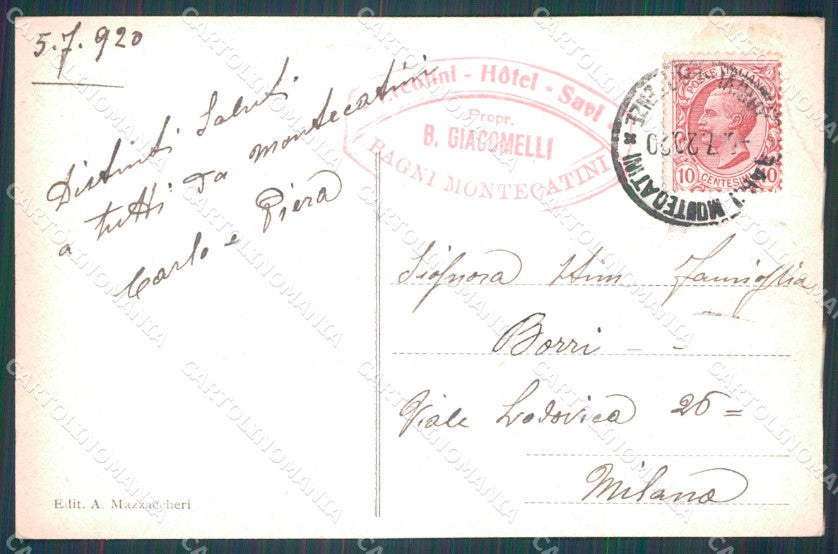 5.7.920
Distinti Saluti
a tutti da Montecatini
Carlo e Piera
Edit. A. Mazzaccheri
Ercolini - Hôtel - Savi
Propr.
B. GIACOMELLI
BAGNI MONTECATINI
POSTE ITALIANE
10 CENTESIMI 10
MONTECATINI
7.20
Famiglia
Borri - -
Viale Lodovica 26 =
Milano
CARTOLINOMANIA